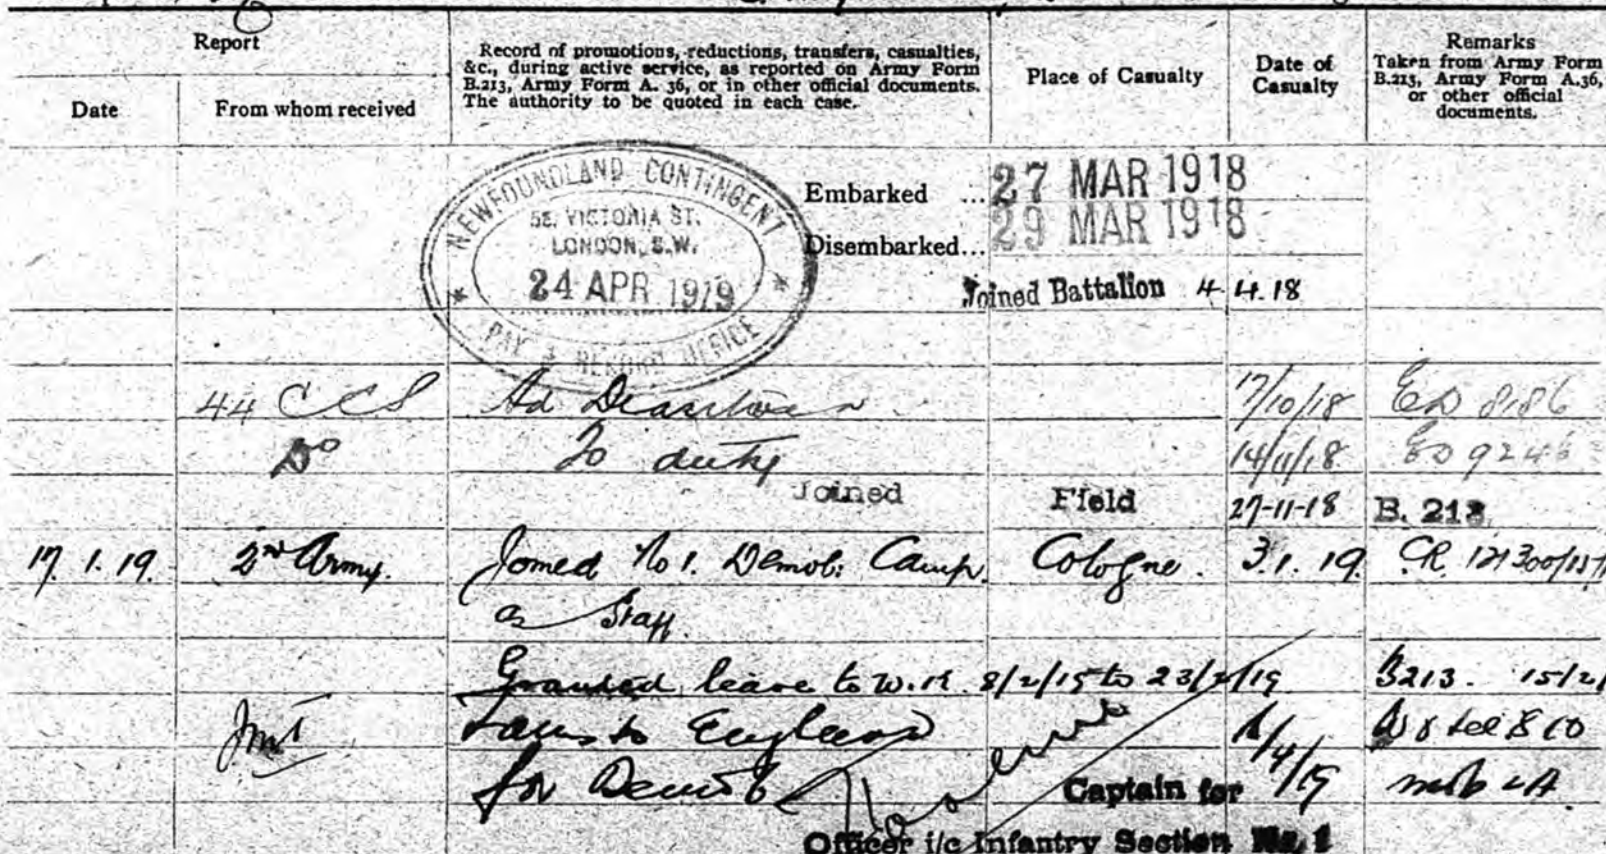 Report
Date
From whom received
Record of promotions, reductions, transfers, casualties, &c., during active service, as reported on Army Form B.213, Army Form A. 36, or in other official documents. The authority to be quoted in each case.
Place of Casualty
Date of Casualty
Remarks
Taken from Army Form B.213, Army Form A.36, or other official documents.
NEWFOUNDLAND CONTINGENT
58, VICTORIA ST.
LONDON, S.W.
24 APR 1919
PAY & RECORD OFFICE
Embarked ... 27 MAR 1918
Disembarked... 29 MAR 1918
Joined Battalion 4.4.18
44 CCS Ad 17/10/18 ED 8186
Do To duty 14/11/18 ED 9246
Joined Field 27-11-18 B. 213
17.1.19. 2nd Army. Joined No 1. Demob: Camp Cologne. 3.1.19. CR
as Staff.
Granted leave to U.K. 8/2/19 to 23/2/19 B213. 15/2/
to England
for Demob 4/19
Captain for
Officer i/c Infantry Section No. 1